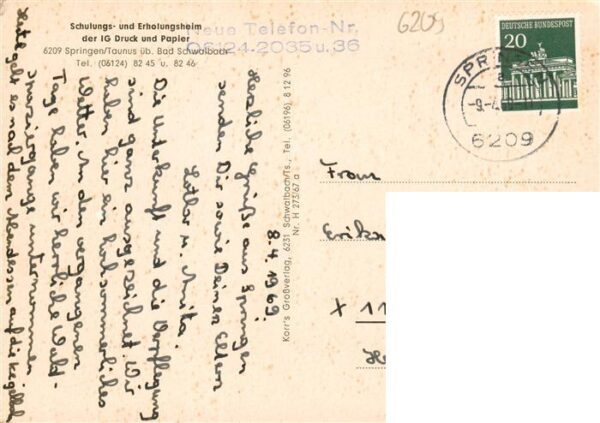 Schulungs- und Erholungsheim
der IG Druck und Papier
6209 Springen/Taunus üb. Bad Schwalbach
Tel. (06124) 82 45 u. 82 46
Neue Telefon-Nr.
06124-2035 u. 36
6209
DEUTSCHE BUNDESPOST
20
SPRIN
a
-9.-4.
6209
8.4.1969
Herzliche Grüße aus Springen
senden Dir sowie Deinen Eltern
Lothar u. Anita.
Die Unterkunft und die Verpflegung
sind ganz ausgezeichnet. Wir
haben hier ein hochsommerliches
Wetter. In den vergangenen
Tage haben wir herrliche Wald-
spaziergänge unternommen
Heute geht es nach dem Abendessen auf die Kegelbahn
Korr's Großverlag, 6231 Schwalbach/Ts., Tel. (06196) 8 12 96
Nr. H 275/67 a
Frau
Erika
X 11